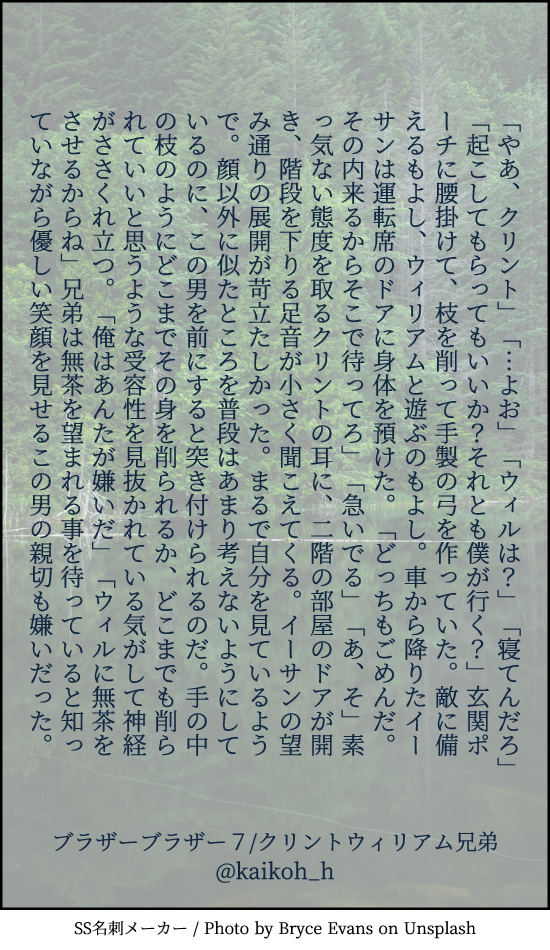 「やあ、クリント」「…よお」「ウィルは？」「寝てんだろ」
「起こしてもらってもいいか？それとも僕が行く？」玄関ポ
ーチに腰掛けて、枝を削って手製の弓を作っていた。敵に備
えるもよし、ウィリアムと遊ぶのもよし。車から降りたイー
サンは運転席のドアに身体を預けた。「どっちもごめんだ。
その内来るからそこで待ってろ」「急いでる」「あ、そ」素
っ気ない態度を取るクリントの耳に、二階の部屋のドアが開
き、階段を下りる足音が小さく聞こえてくる。イーサンの望
み通りの展開が苛立たしかった。まるで自分を見ているよう
で。顔以外に似たところを普段はあまり考えないようにして
いるのに、この男を前にすると突き付けられるのだ。手の中
の枝のようにどこまでその身を削られるか、どこまでも削ら
れていいと思うような受容性を見抜かれている気がして神経
がささくれ立つ。「俺はあんたが嫌いだ」「ウィルに無茶を
させるからね」兄弟は無茶を望まれる事を待っていると知っ
ていながら優しい笑顔を見せるこの男の親切も嫌いだった。
ブラザーブラザー７/クリントウィリアム兄弟
@kaikoh_h
SS名刺メーカー / Photo by Bryce Evans on Unsplash